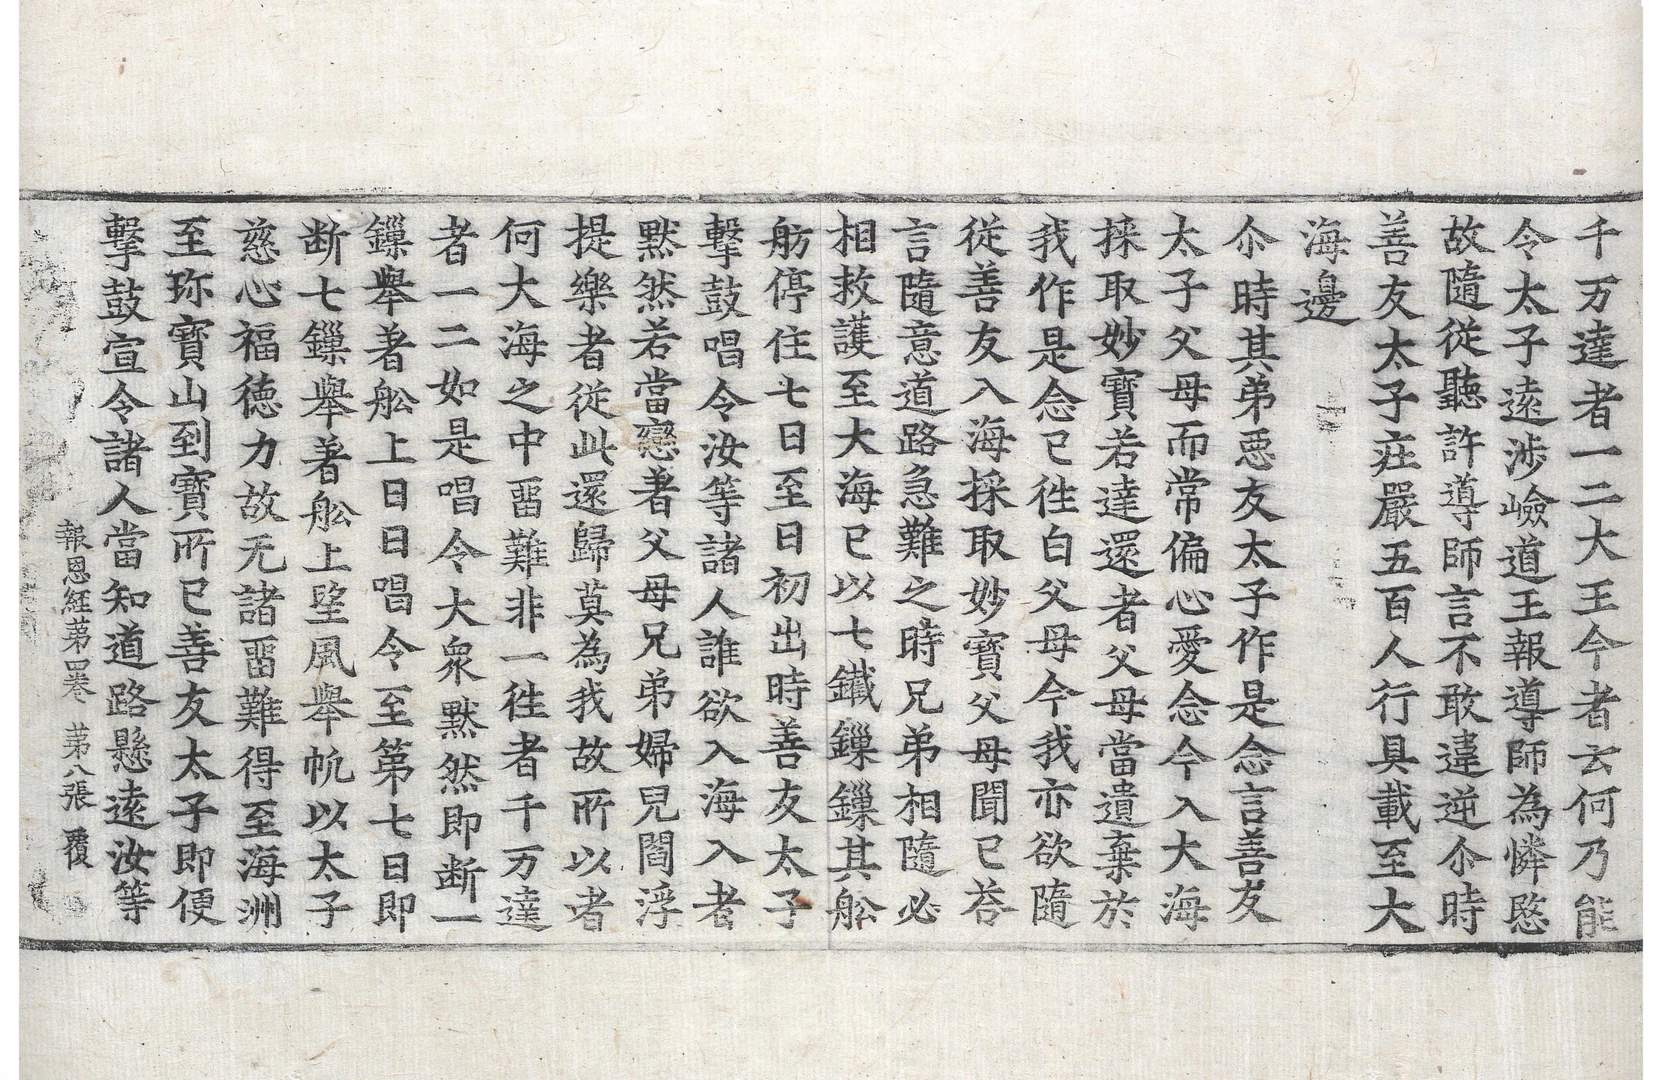 千万達者一二大王今者云何乃能
令太子遠渉嶮道王報導師為憐愍
故隨從聽許導師言不敢違逆尒時
善友太子㽵嚴五百人行具載至大
海邊
尒時其弟惡友太子作是念言善友
太子父母而常偏心愛念今入大海
採取妙寶若達還者父母當遺棄於
我作是念已徃白父母今我亦欲隨
從善友入海採取妙寶父母聞已荅
言隨意道路急難之時兄弟相隨必
相救護至大海已以七鐵鏁鏁其舩
舫停住七日至日初出時善友太子
擊鼓唱令汝等諸人誰欲入海入者
默然若當戀著父母兄弟婦兒閻浮
提樂者從此還歸莫為我故所以者
何大海之中留難非一徃者千万達
者一二如是唱令大衆默然即断一
鏁舉著舩上日日唱令至第七日即
断七鏁舉著舩上望風舉帆以太子
慈心福德力故无諸留難得至海洲
至珎寶山到寶所已善友太子即便
擊鼓宣令諸人當知道路懸遠汝等
報恩經苐四卷 苐八張 覆